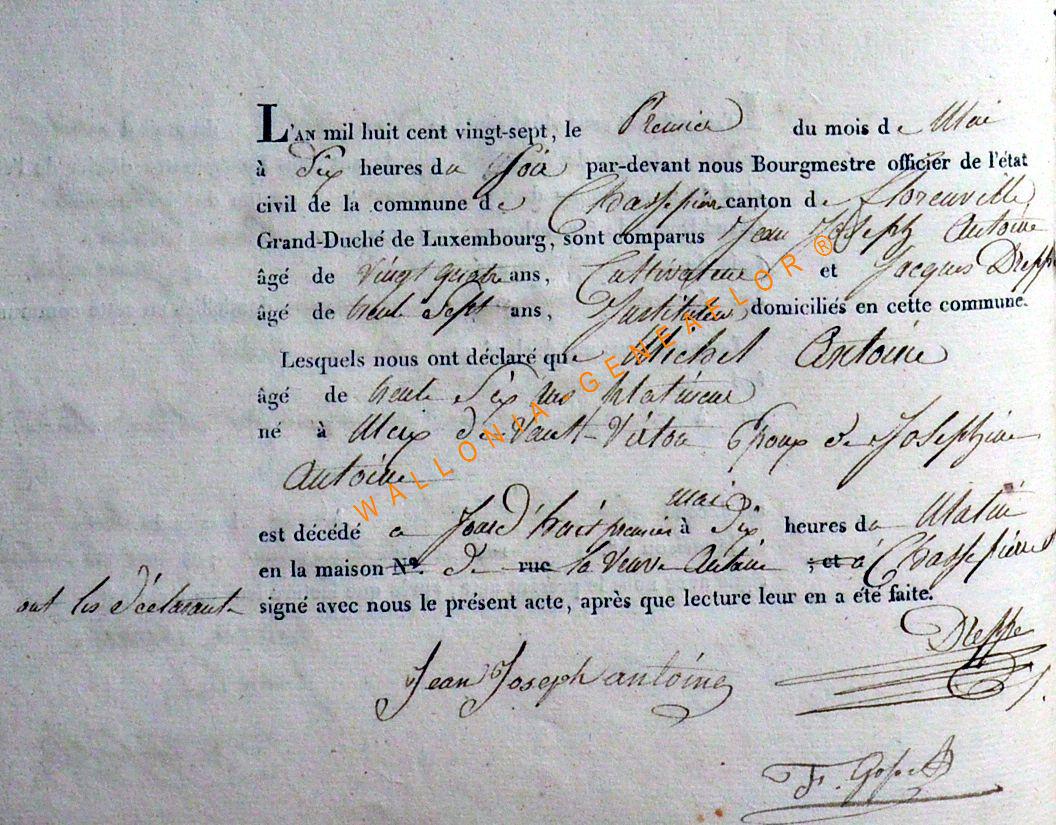 L'AN mil huit cent vingt-sept, le Premier du mois de Mai
à Six heures du Soir par-devant nous Bourgmestre officier de l'état
civil de la commune de Chassepierre canton de florenville
Grand-Duché de Luxembourg, sont comparus Jean Joseph Antoine
âgé de vingt quatre ans, Cultivateur et Jacques Dreppe
âgé de trente Sept ans, Instituteur domiciliés en cette commune.
Lesquels nous ont déclaré que Michel Antoine
âgé de trente Six ans platineur
né à Meix devant-Virton Epoux de Josephine
Antoine
mai
est décédé a Jourd'huit premier à Dix heures du Matin
en la maison N°. de rue la veuve Antoine , et à Chassepierre
ont les déclarants signé avec nous le présent acte, après que lecture leur en a été faite.
Dreppe
Jean Joseph antoine
F.
WALLONIA-GENEALOR®